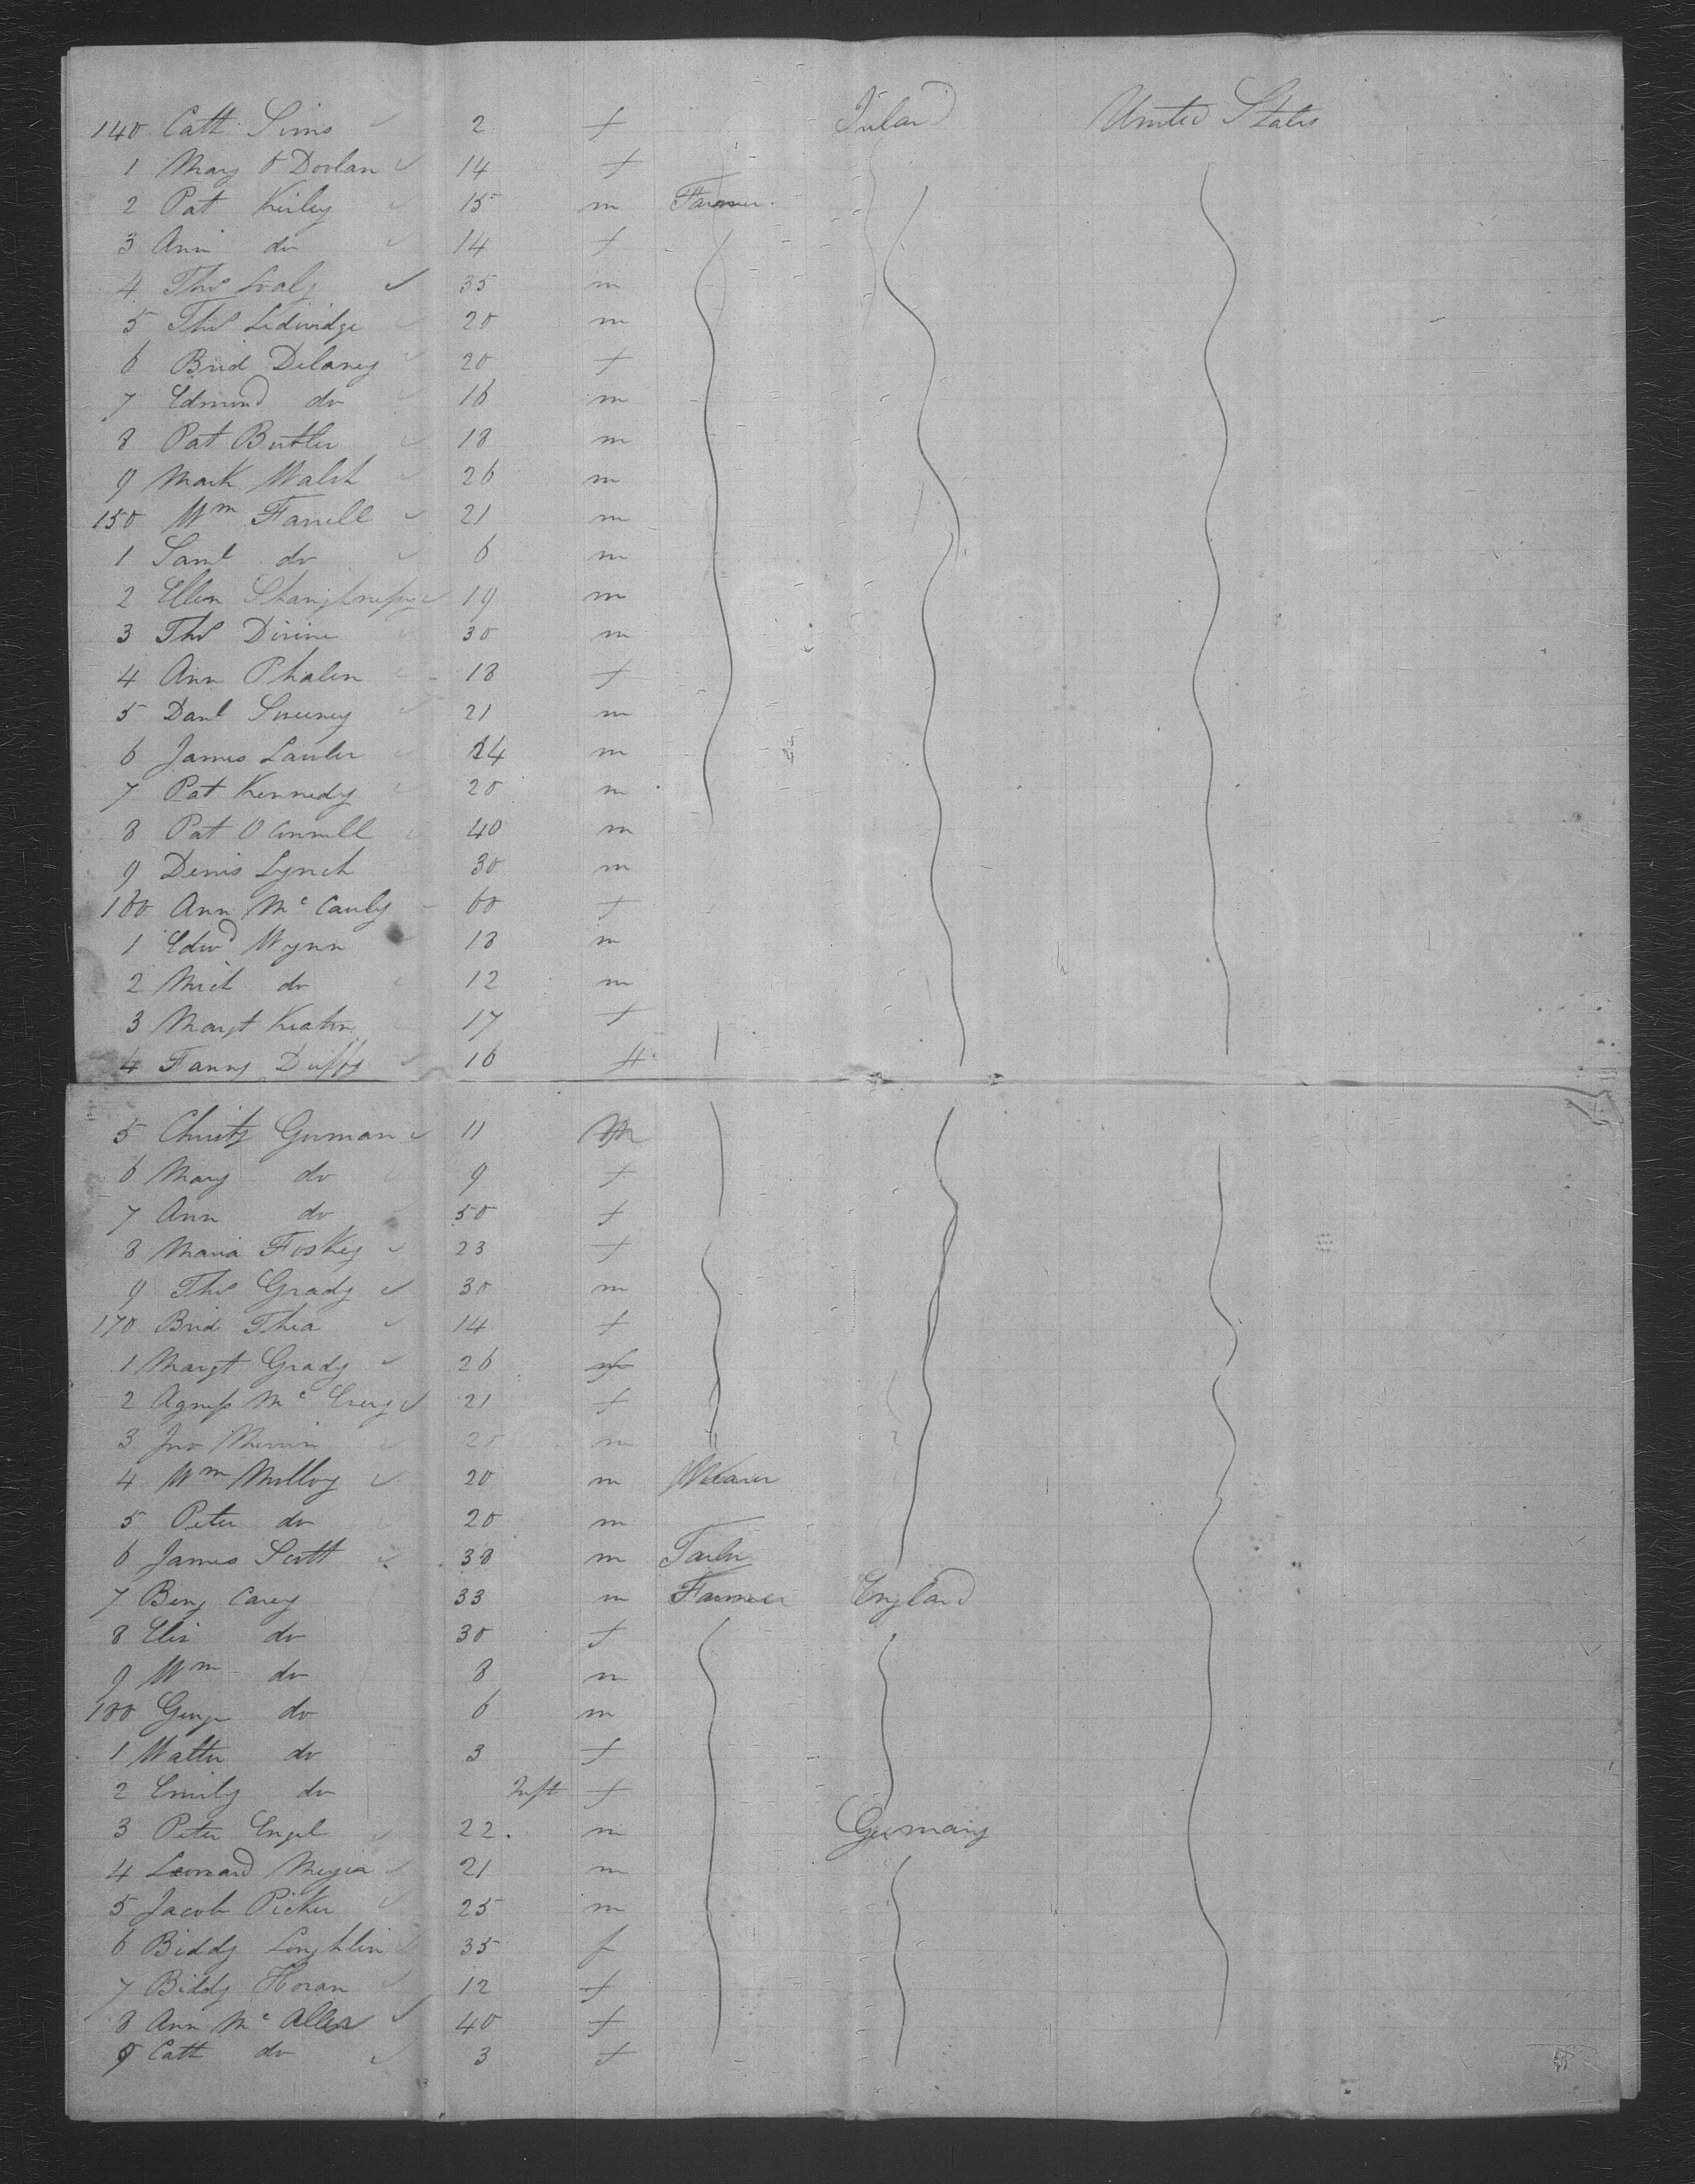 140 Cath Sims 2 f Ireland United States
1 Mary O Doolan 14 f
2 Pat Kirley 15 m Farmer
3 Ann do 14 f
4 Thos 35 m
5 Thos Ledwidge 20 m
6 Brid Delaney 20 f
7 Edmond do 16 m
8 Pat Butler 18 m
9 Mark Walsh 26 m
150 Wm Farrell 21 m
1 Saml do 6 m
2 Ellen Shaughnessy 19 m
3 Thos Divine 30 m
4 Ann Phalen 18 f
5 Danl Sweeney 21 m
6 James Lawler 24 m
7 Pat Kennedy 20 m
8 Pat O Connell 40 m
9 Denis Lynch 30 m
160 Ann Mc Cauly 60 f
1 Edwd Wynn 18 m
2 Mich do 12 m
3 Margt Keaton 17 f
4 Fanny Duffy 16 f
5 Christy Gorman 11 m
6 Mary do 9 f
7 Ann do 50 f
8 Maria Foskey 23 f
9 Thos Grady 30 m
170 Brid Shea 14 f
1 Margt Grady 26 f
2 Agness Mc Creery 21 f
3 Jno 20 m
4 Wm Mulloy 20 m Weaver
5 Peter do 20 m
6 James Scott 38 m Tailor
7 Benj Carey 33 m Farmer England
8 Eliz do 30 f
9 Wm do 8 m
180 George do 6 m
1 Walter do 3 f
2 Emily do Inft f
3 Peter Engel 22 m Germany
4 Leonard 21 m
5 Jacob Picker 25 m
6 Biddy Loughlin 35 f
7 Biddy Horan 12 f
8 Ann Mc Aller 40 f
9 Cath do 3 f